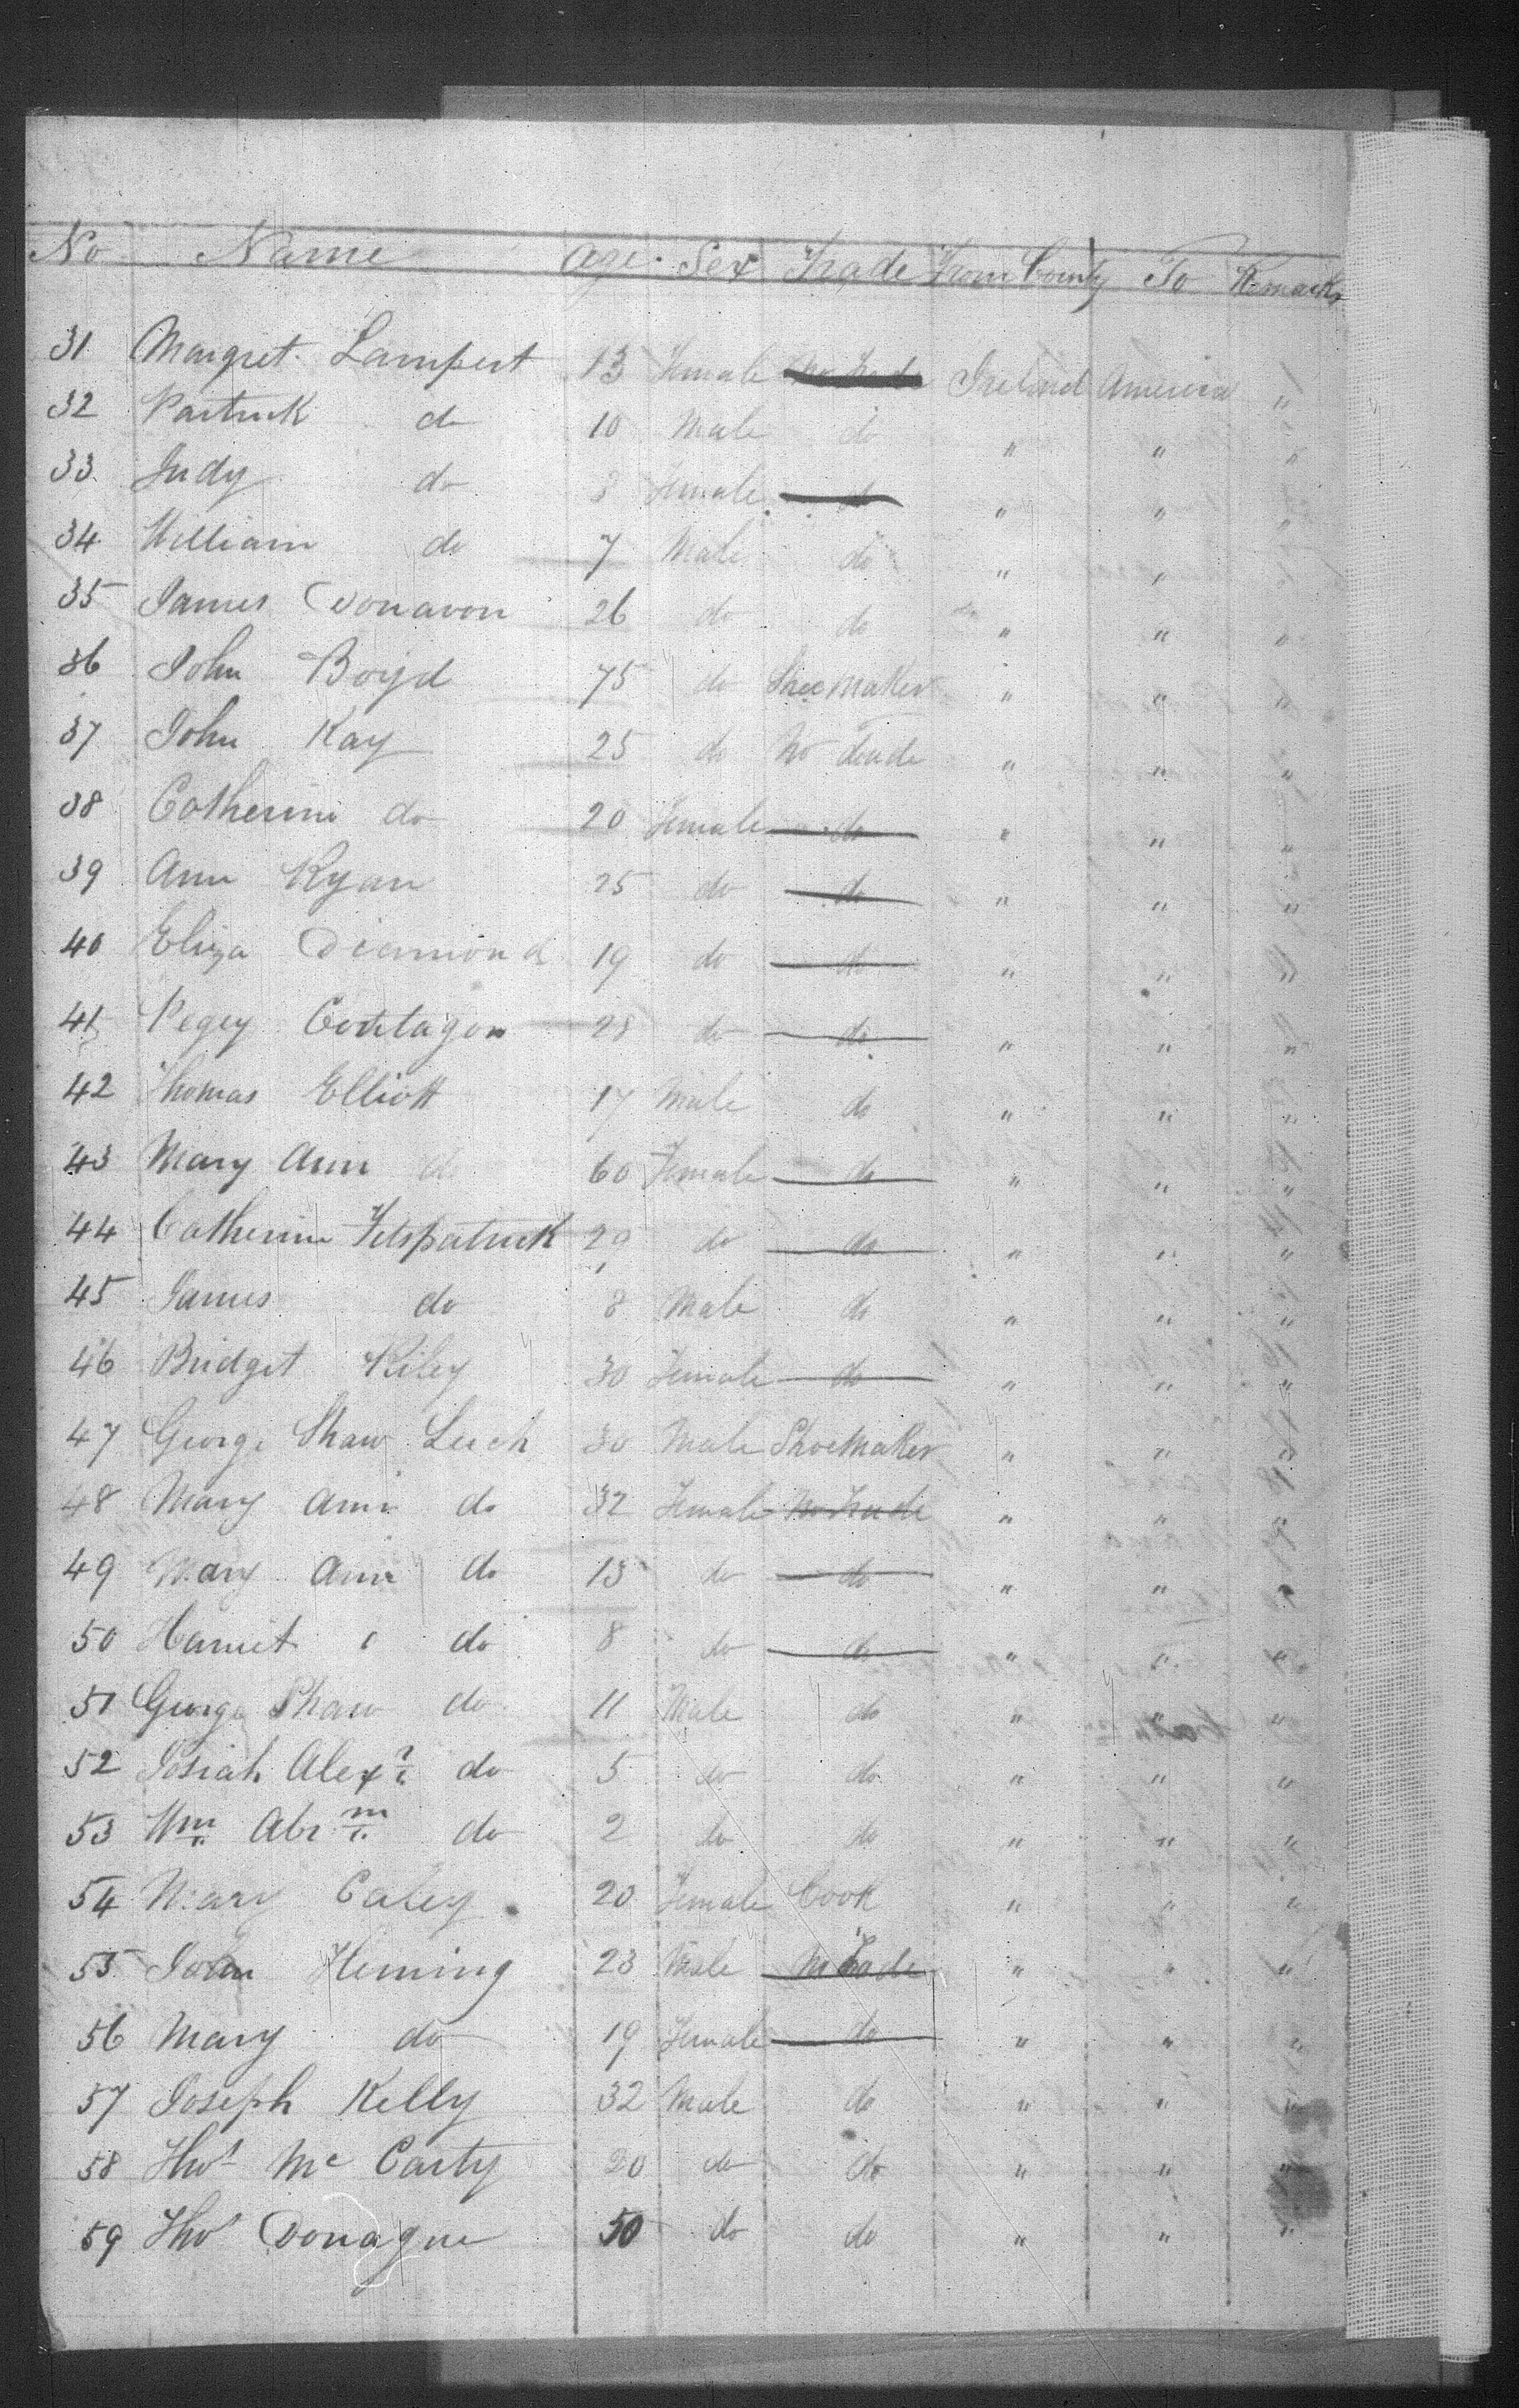 No Name Age Sex Trade From County To Remarks
31 Margret Lampert 13 Female No Trade Ireland America "
32 Partrick do 10 Male do " " "
33 Judy do 8 Female do " " "
34 William do 7 Male do " " "
35 James Donavon 26 do do " " "
36 John Boyd 75 do Shoemaker " " "
37 John Kay 25 do No trade " " "
38 Catherine do 20 Female do " " "
39 Ann Ryan 25 do do " " "
40 Eliza Diamond 19 do do " " "
41 Pegey 28 do do " " "
42 Thomas Elliott 17 Male do " " "
43 Mary Ann do 60 Female do " " "
44 Catherine Fitspatrick 29 do do " " "
45 James do 8 Male do " " "
46 Bridget Riley 30 Female do " " "
47 George Shaw Leech 30 Male Shoemaker " " "
48 Mary Ann do 32 Female No Trade " " "
49 Mary Ann do 13 do do " " "
50 Harriet do 8 do do " " "
51 George Shaw do 11 Male do " " "
52 Josiah Alexr do 5 do do " " "
53 Wm Abrm do 2 do do " " "
54 Mary Caley 20 Female Cook " " "
55 John Heming 23 Male No Trade " " "
56 Mary do 19 Female do " " "
57 Joseph Kelly 32 Male do " " "
58 Thos Mc Carty 20 do do " " "
59 Thos Donague 50 do do " " "